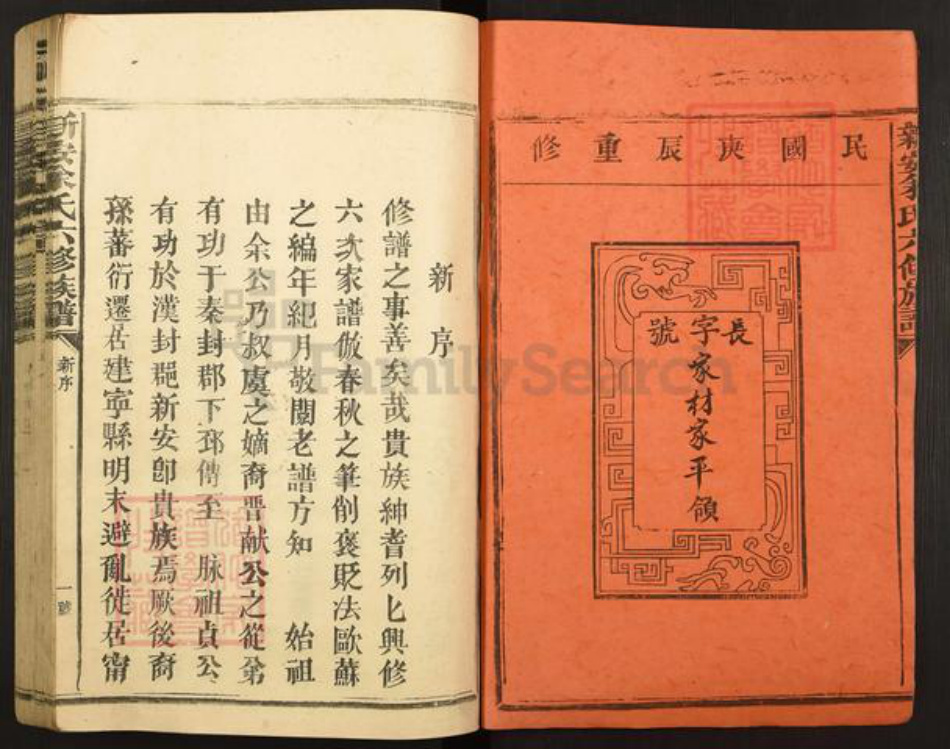 民國庚辰重修
長字號
家材家平領
新安余氏六修族譜
新序
修譜之事善矣哉貴族紳耆列匕興修
六次家譜倣春秋之筆削褒貶法歐蘇
之編年紀月敬閱老譜方知 始祖
由余公乃叔虞之嫡裔晋献公之從弟
有功于秦封郡下邳傳至 脉祖貞公
有功於漢封邑新安卽貴族焉厥後裔
孫蕃衍遷居建寧縣明末避亂徙居甯
新安余氏六修族譜
新序
一
FamilySearch